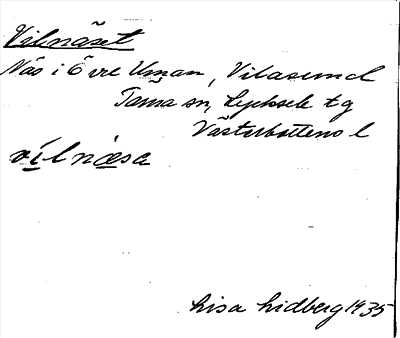 Vilnäset
Näs i Övre Uman, Vilasund
Tärna sn, Lycksele tg
Västerbottens l
vílnæsa
Lisa Lidberg 1935